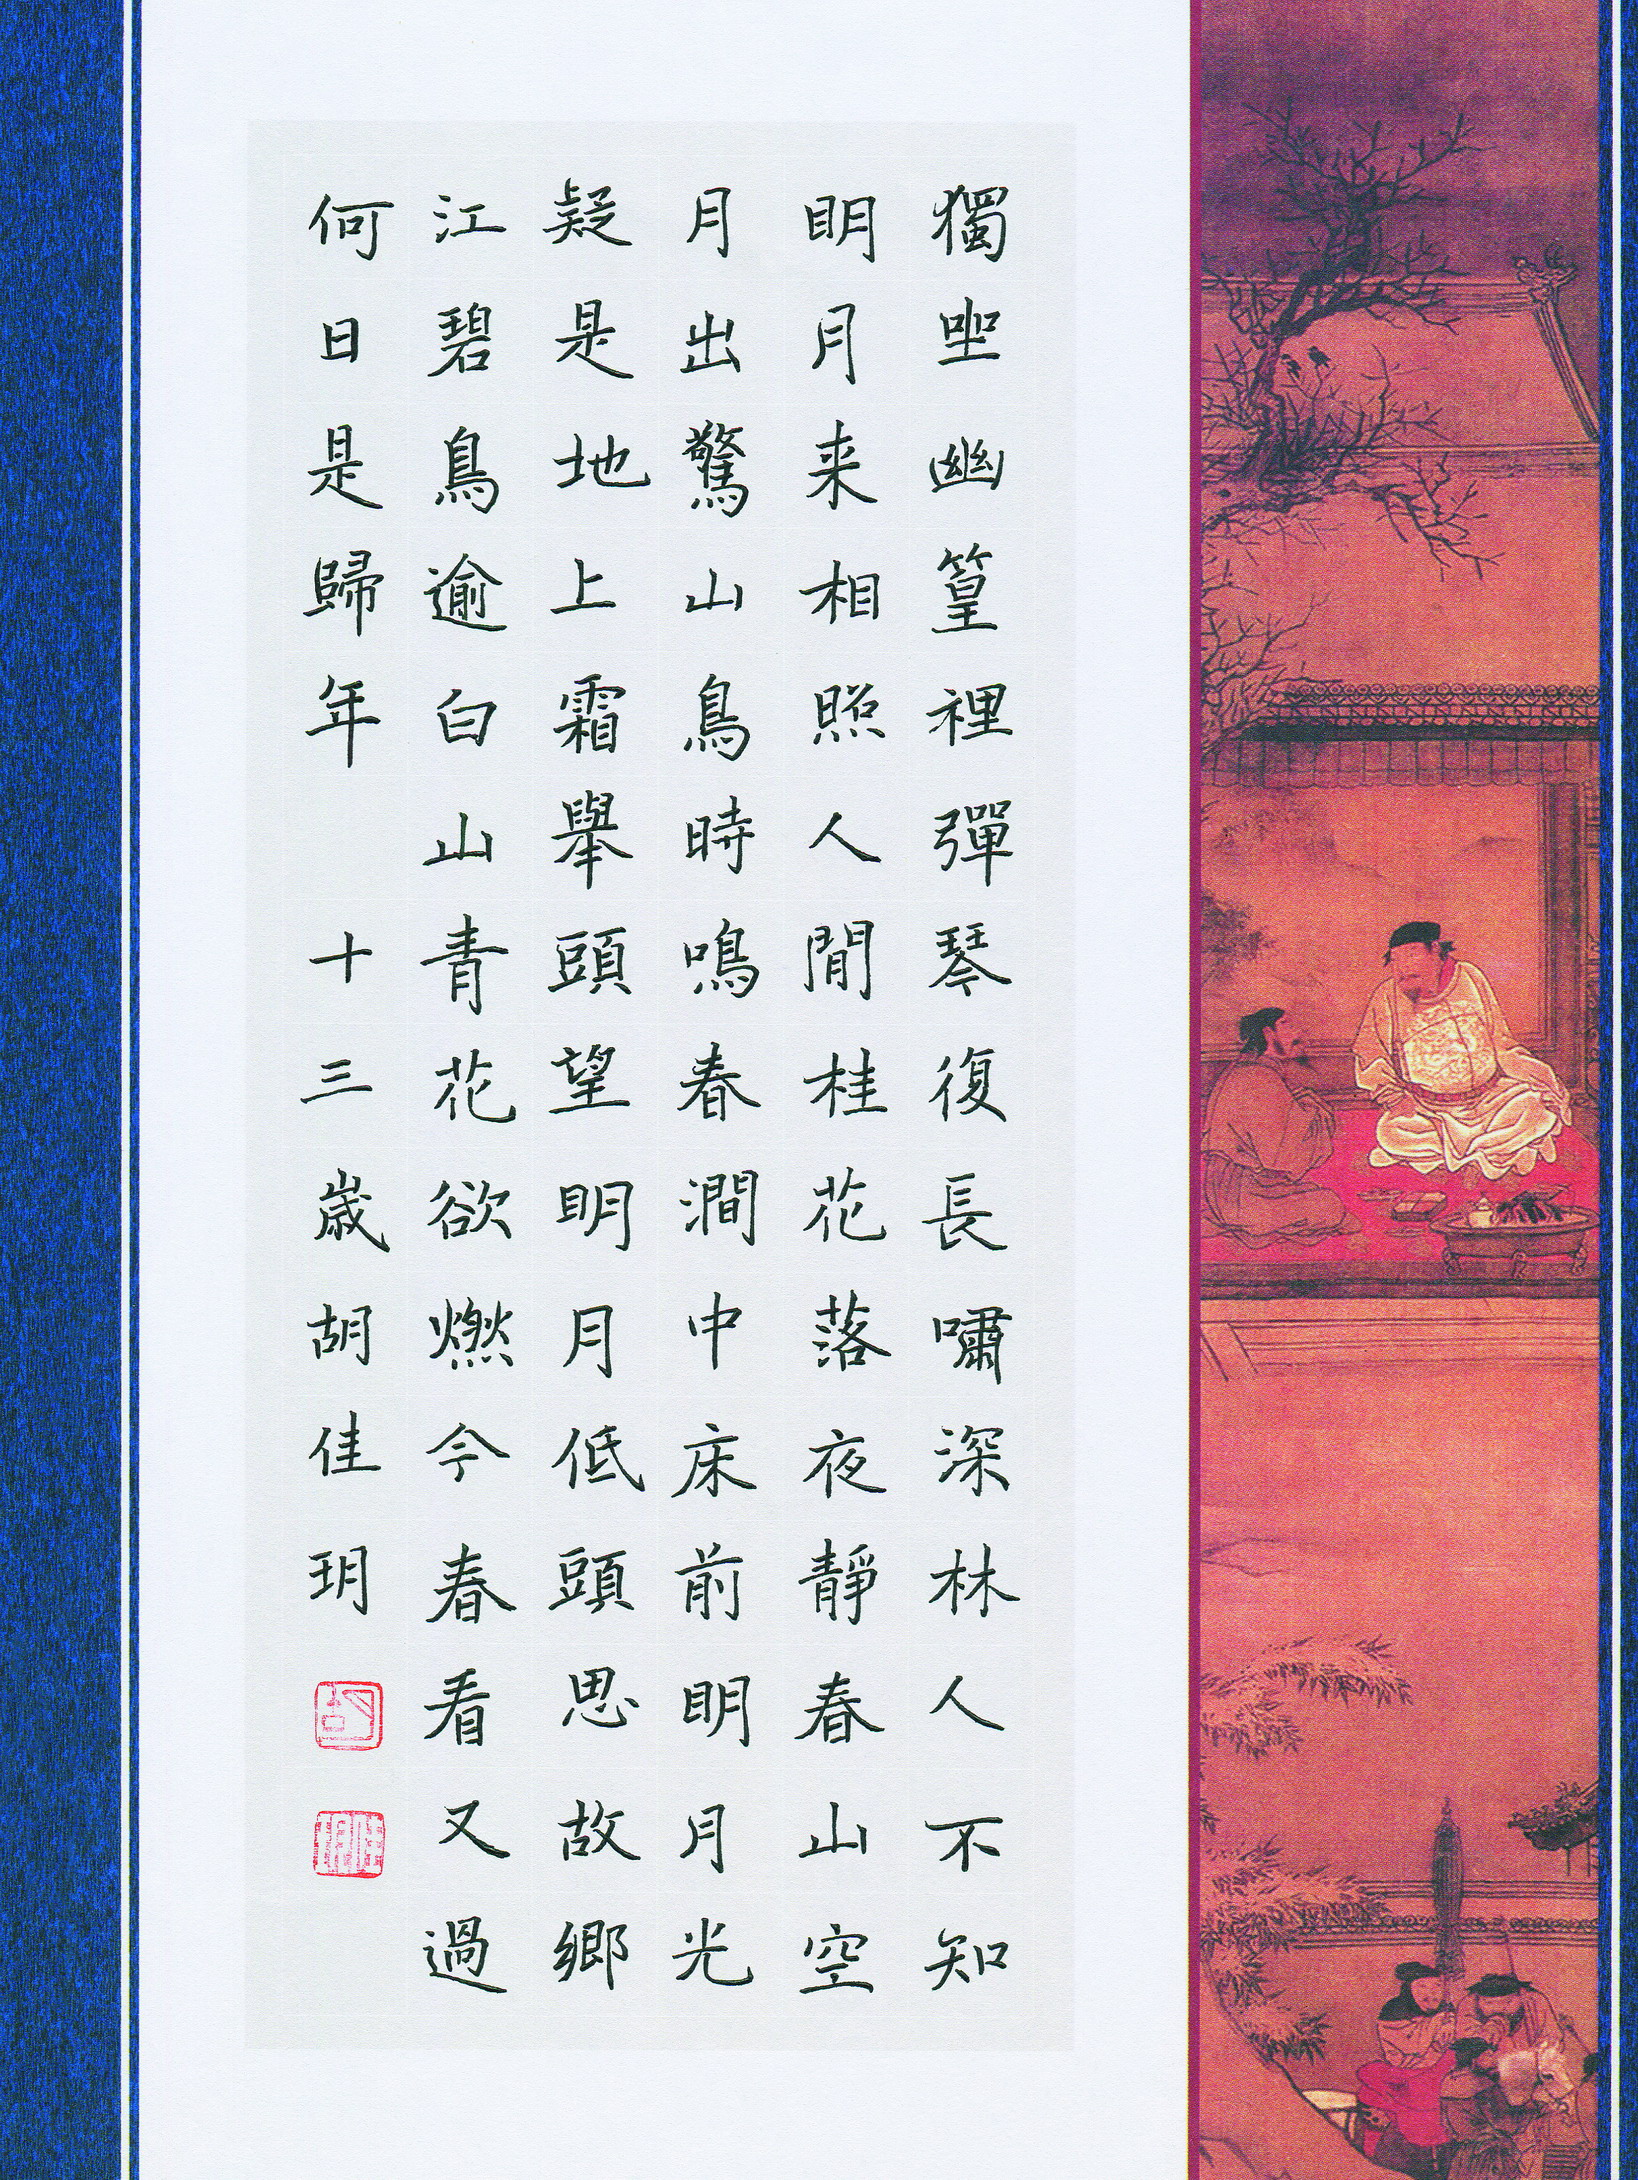 獨坐幽篁裡彈琴復長嘯深林人不知
明月来相照人閒桂花落夜靜春山空
月出驚山鳥時鳴春澗中床前明月光
疑是地上霜舉頭望明月低頭思故鄉
江碧鳥逾白山青花欲燃今春看又過
何日是歸年 十三歲胡佳玥
胡
佳玥